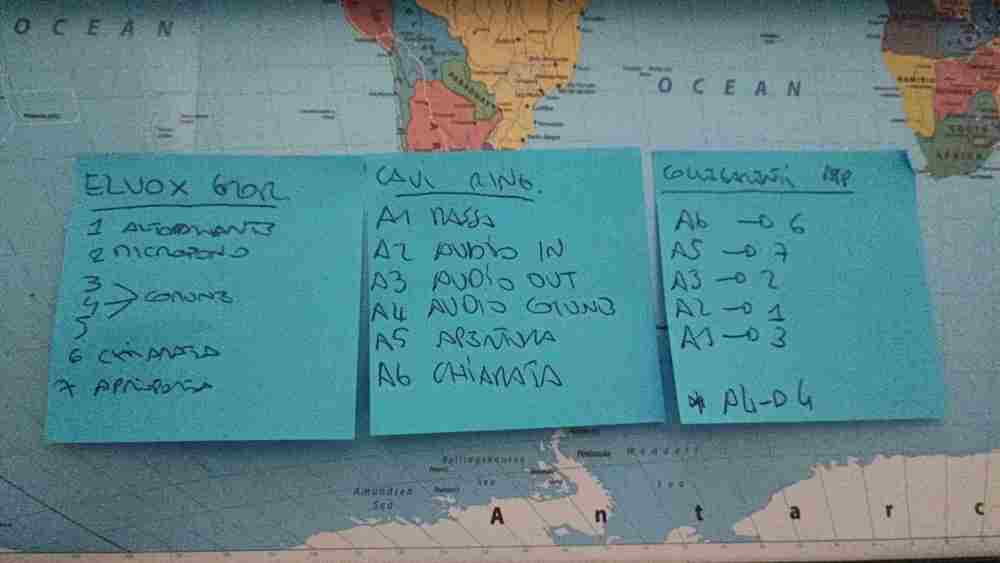 OCEAN
OCEAN
PARAGUAY
NAMIBIA
SOUTH
AFRICA
ELVOX
1 ALTOPARLANTE
2 MICROFONO
3
4 > COMUNE
5
6 CHIAMATA
7 APRIPORTA
CAVI RING.
A1 MASSA
A2 AUDIO IN
A3 AUDIO OUT
A4 AUDIO COMUNE
A5 APERTURA
A6 CHIAMATA
COLLEGAMENTI
A6 → 6
A5 → 7
A3 → 2
A2 → 1
A1 → 3
* A4 → 4
Bellingshausen
Sea
Amundsen
Sea
Peninsula
Weddell
Sea
Antarc